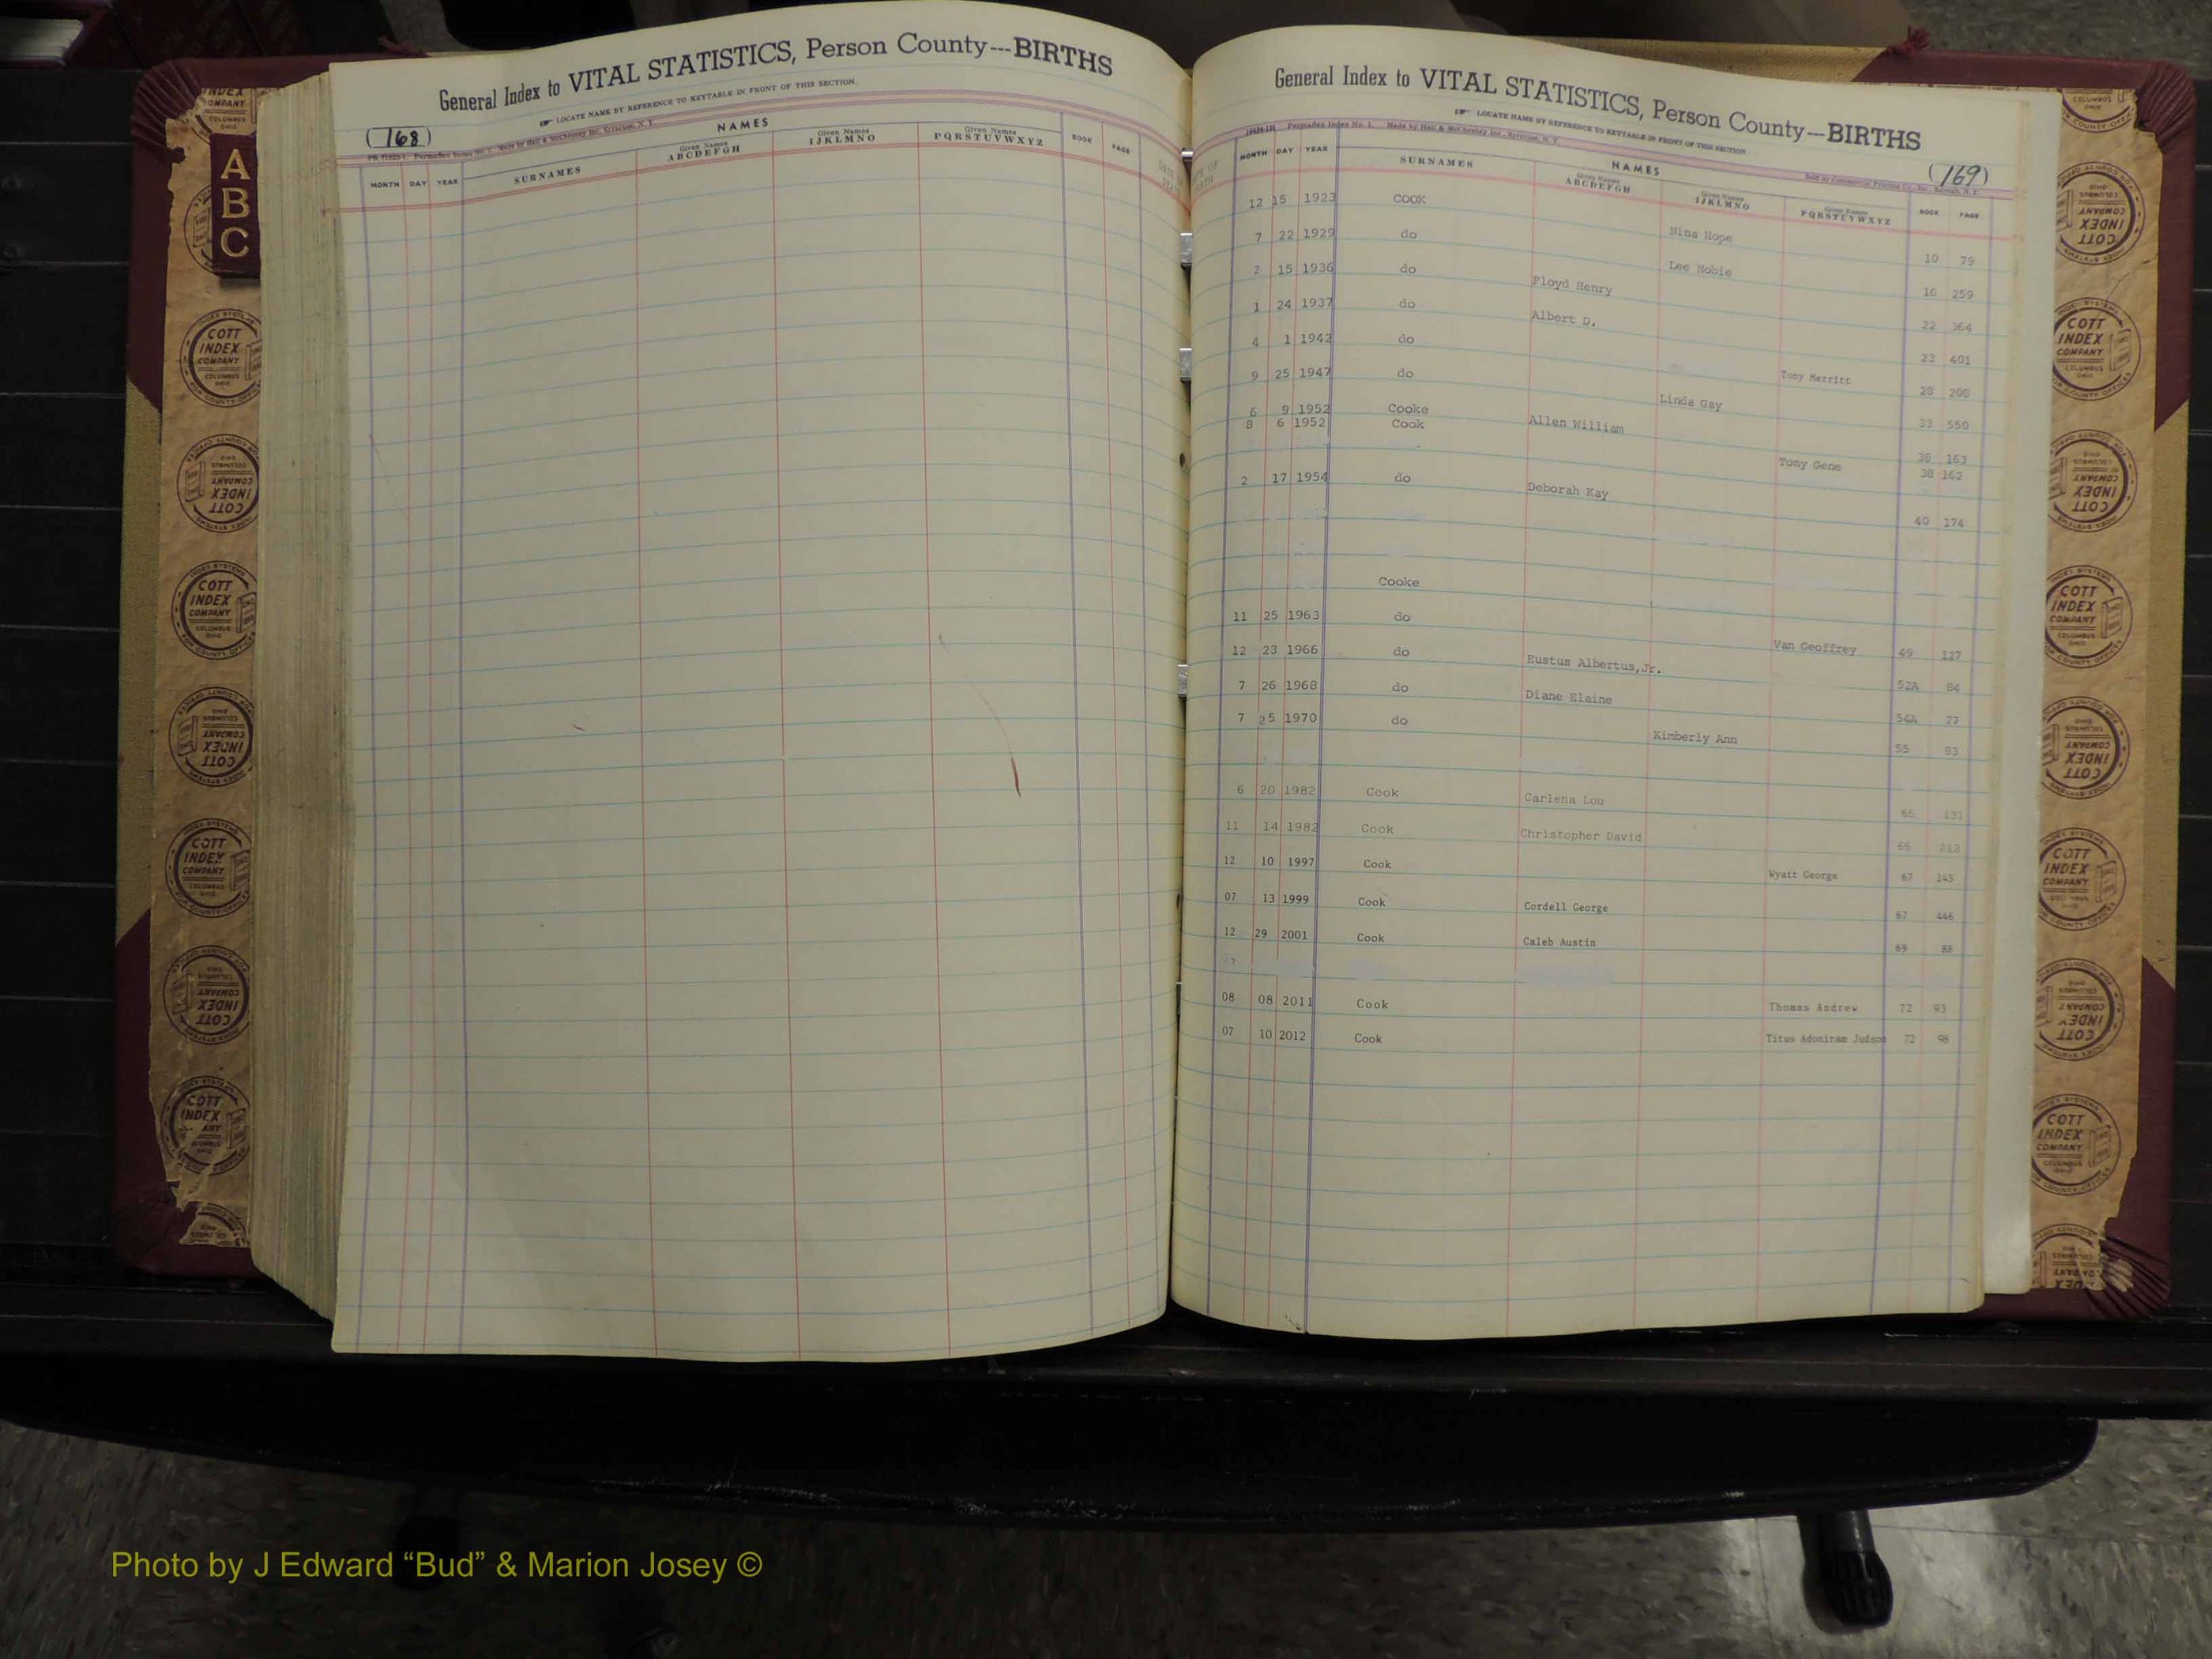 General Index to VITAL STATISTICS, Person County---BIRTHS
LOCATE NAME BY REFERENCE TO KEYTABLE IN FRONT OF THIS SECTION.
(168)
NAMES
MONTH DAY YEAR SURNAMES Given Names ABCDEFGH Given Names IJKLMNO Given Names PQRSTUVWXYZ BOOK PAGE
A
B
C
General Index to VITAL STATISTICS, Person County---BIRTHS
LOCATE NAME BY REFERENCE TO KEYTABLE IN FRONT OF THIS SECTION.
(169)
NAMES
MONTH DAY YEAR SURNAMES Given Names ABCDEFGH Given Names IJKLMNO Given Names PQRSTUVWXYZ BOOK PAGE
12 15 1923 COOK Nina Hope 10 79
7 22 1929 do Lee Nobie 16 259
2 15 1936 do Floyd Henry 22 364
1 24 1937 do Albert D. 23 401
4 1 1942 do Tony Merritt 28 208
9 25 1947 do Linda Gay 33 550
6 9 1952 Cooke Allen William 38 163
8 6 1952 Cook Tony Gene 38 162
2 17 1954 do Deborah Kay 40 174
Cooke
11 25 1963 do Van Geoffrey 49 127
12 23 1966 do Eustus Albertus,Jr. 52A 84
7 26 1968 do Diane Elaine 54A 77
7 25 1970 do Kimberly Ann 55 93
6 20 1982 Cook Carlena Lou 65 131
11 14 1982 Cook Christopher David 65 213
12 10 1997 Cook Wyatt George 67 145
07 13 1999 Cook Cordell George 67 446
12 29 2001 Cook Caleb Austin 69 88
08 08 2011 Cook Thomas Andrew 72 93
07 10 2012 Cook Titus Adoniram Judson 72 98
COTT
INDEX
COMPANY
COLUMBUS
OHIO
Photo by J Edward “Bud” & Marion Josey ©